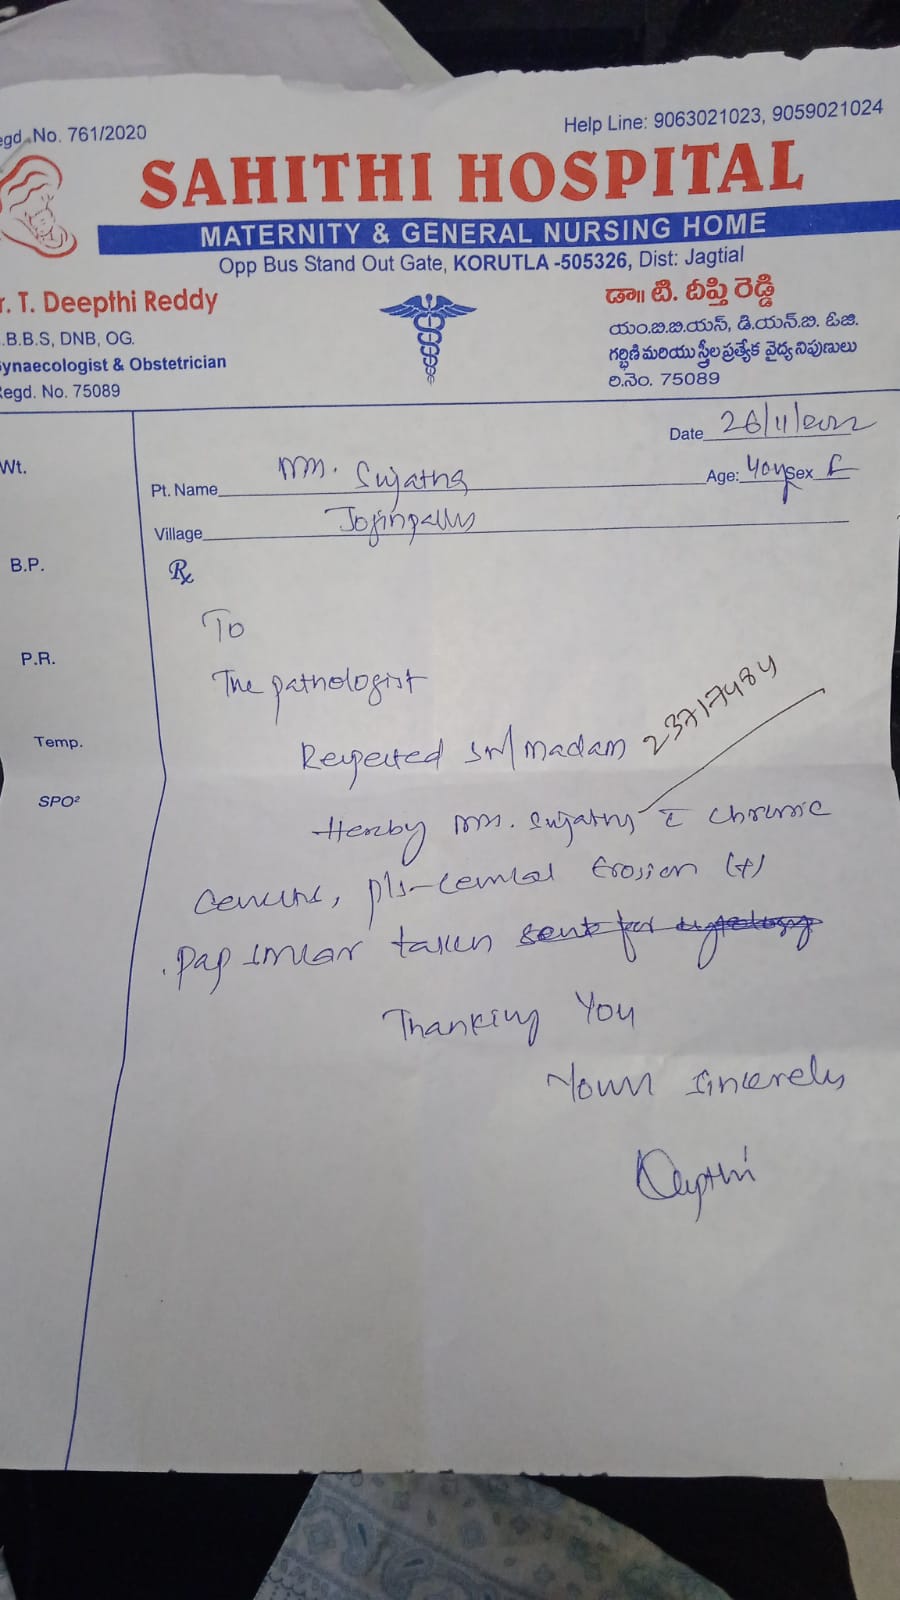 egd. No. 761/2020
Help Line: 9063021023, 9059021024
SAHITHI HOSPITAL
MATERNITY & GENERAL NURSING HOME
Opp Bus Stand Out Gate, KORUTLA -505326, Dist: Jagtial
r. T. Deepthi Reddy
.B.B.S, DNB, OG.
ynaecologist & Obstetrician
Regd. No. 75089
డా॥ టి. దీప్తి రెడ్డి
యం.బి.బి.యస్, డి.యన్.బి. ఓజి.
గర్భిణి మరియు స్త్రీల ప్రత్యేక వైద్య నిపుణులు
రి.నెం. 75089
Date 26/11/2022
Wt.
Pt. Name Mrs. Sujatha
Age: 40y Sex F
Village
B.P.
Rx
To
P.R.
The pathologist
Temp.
Respected Sir/Madam 23717484
SPO²
Hereby Mrs. Sujatha c̄ chronic
P/s - cervical Erosion (+)
. Pap smear taken sent for cytology
Thanking You
Yours sincerely
Deepthi